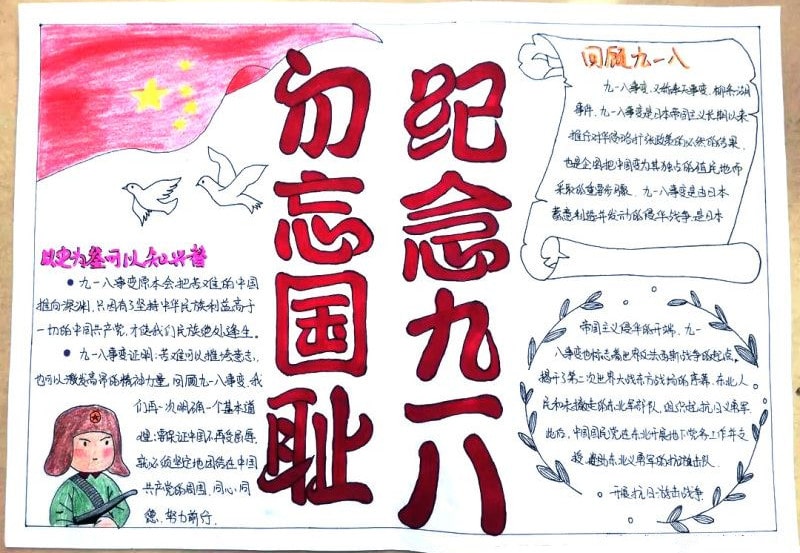 纪念九一八
勿忘国耻
以史为鉴可以知兴替
九一八事变原本会把苦难的中国
推向深渊,只因有了坚持中华民族利益高于
一切的中国共产党,才使我们民族绝处逢生。
九一八事变证明,苦难可以摧垮意志,
也可以激发高昂的精神力量。回顾九一八事变,我
们再一次明确一个基本道
理:要保证中国不再受屈辱,
就必须坚定地团结在中国
共产党的周围,同心同
德、努力前行。
回顾九一八
九一八事变,又称奉天事变、柳条湖
事件。九一八事变是日本帝国主义长期以来
推行对华侵略扩张政策的必然的结果,
也是企图把中国变为其独占的殖民地而
采取的重要步骤。九一八事变是由日本
蓄意制造并发动的侵华战争,是日本
帝国主义侵华的开端。九一
八事变也标志着世界反法西斯战争的起点,
揭开了第二次世界大战东方战场的序幕,东北人
民和未撤走的东北军部队,组织起抗日义勇军,
此后,中国国民党在东北开展地下党务工作并支
助东北义勇军的抗游击队
开展抗日游击战争